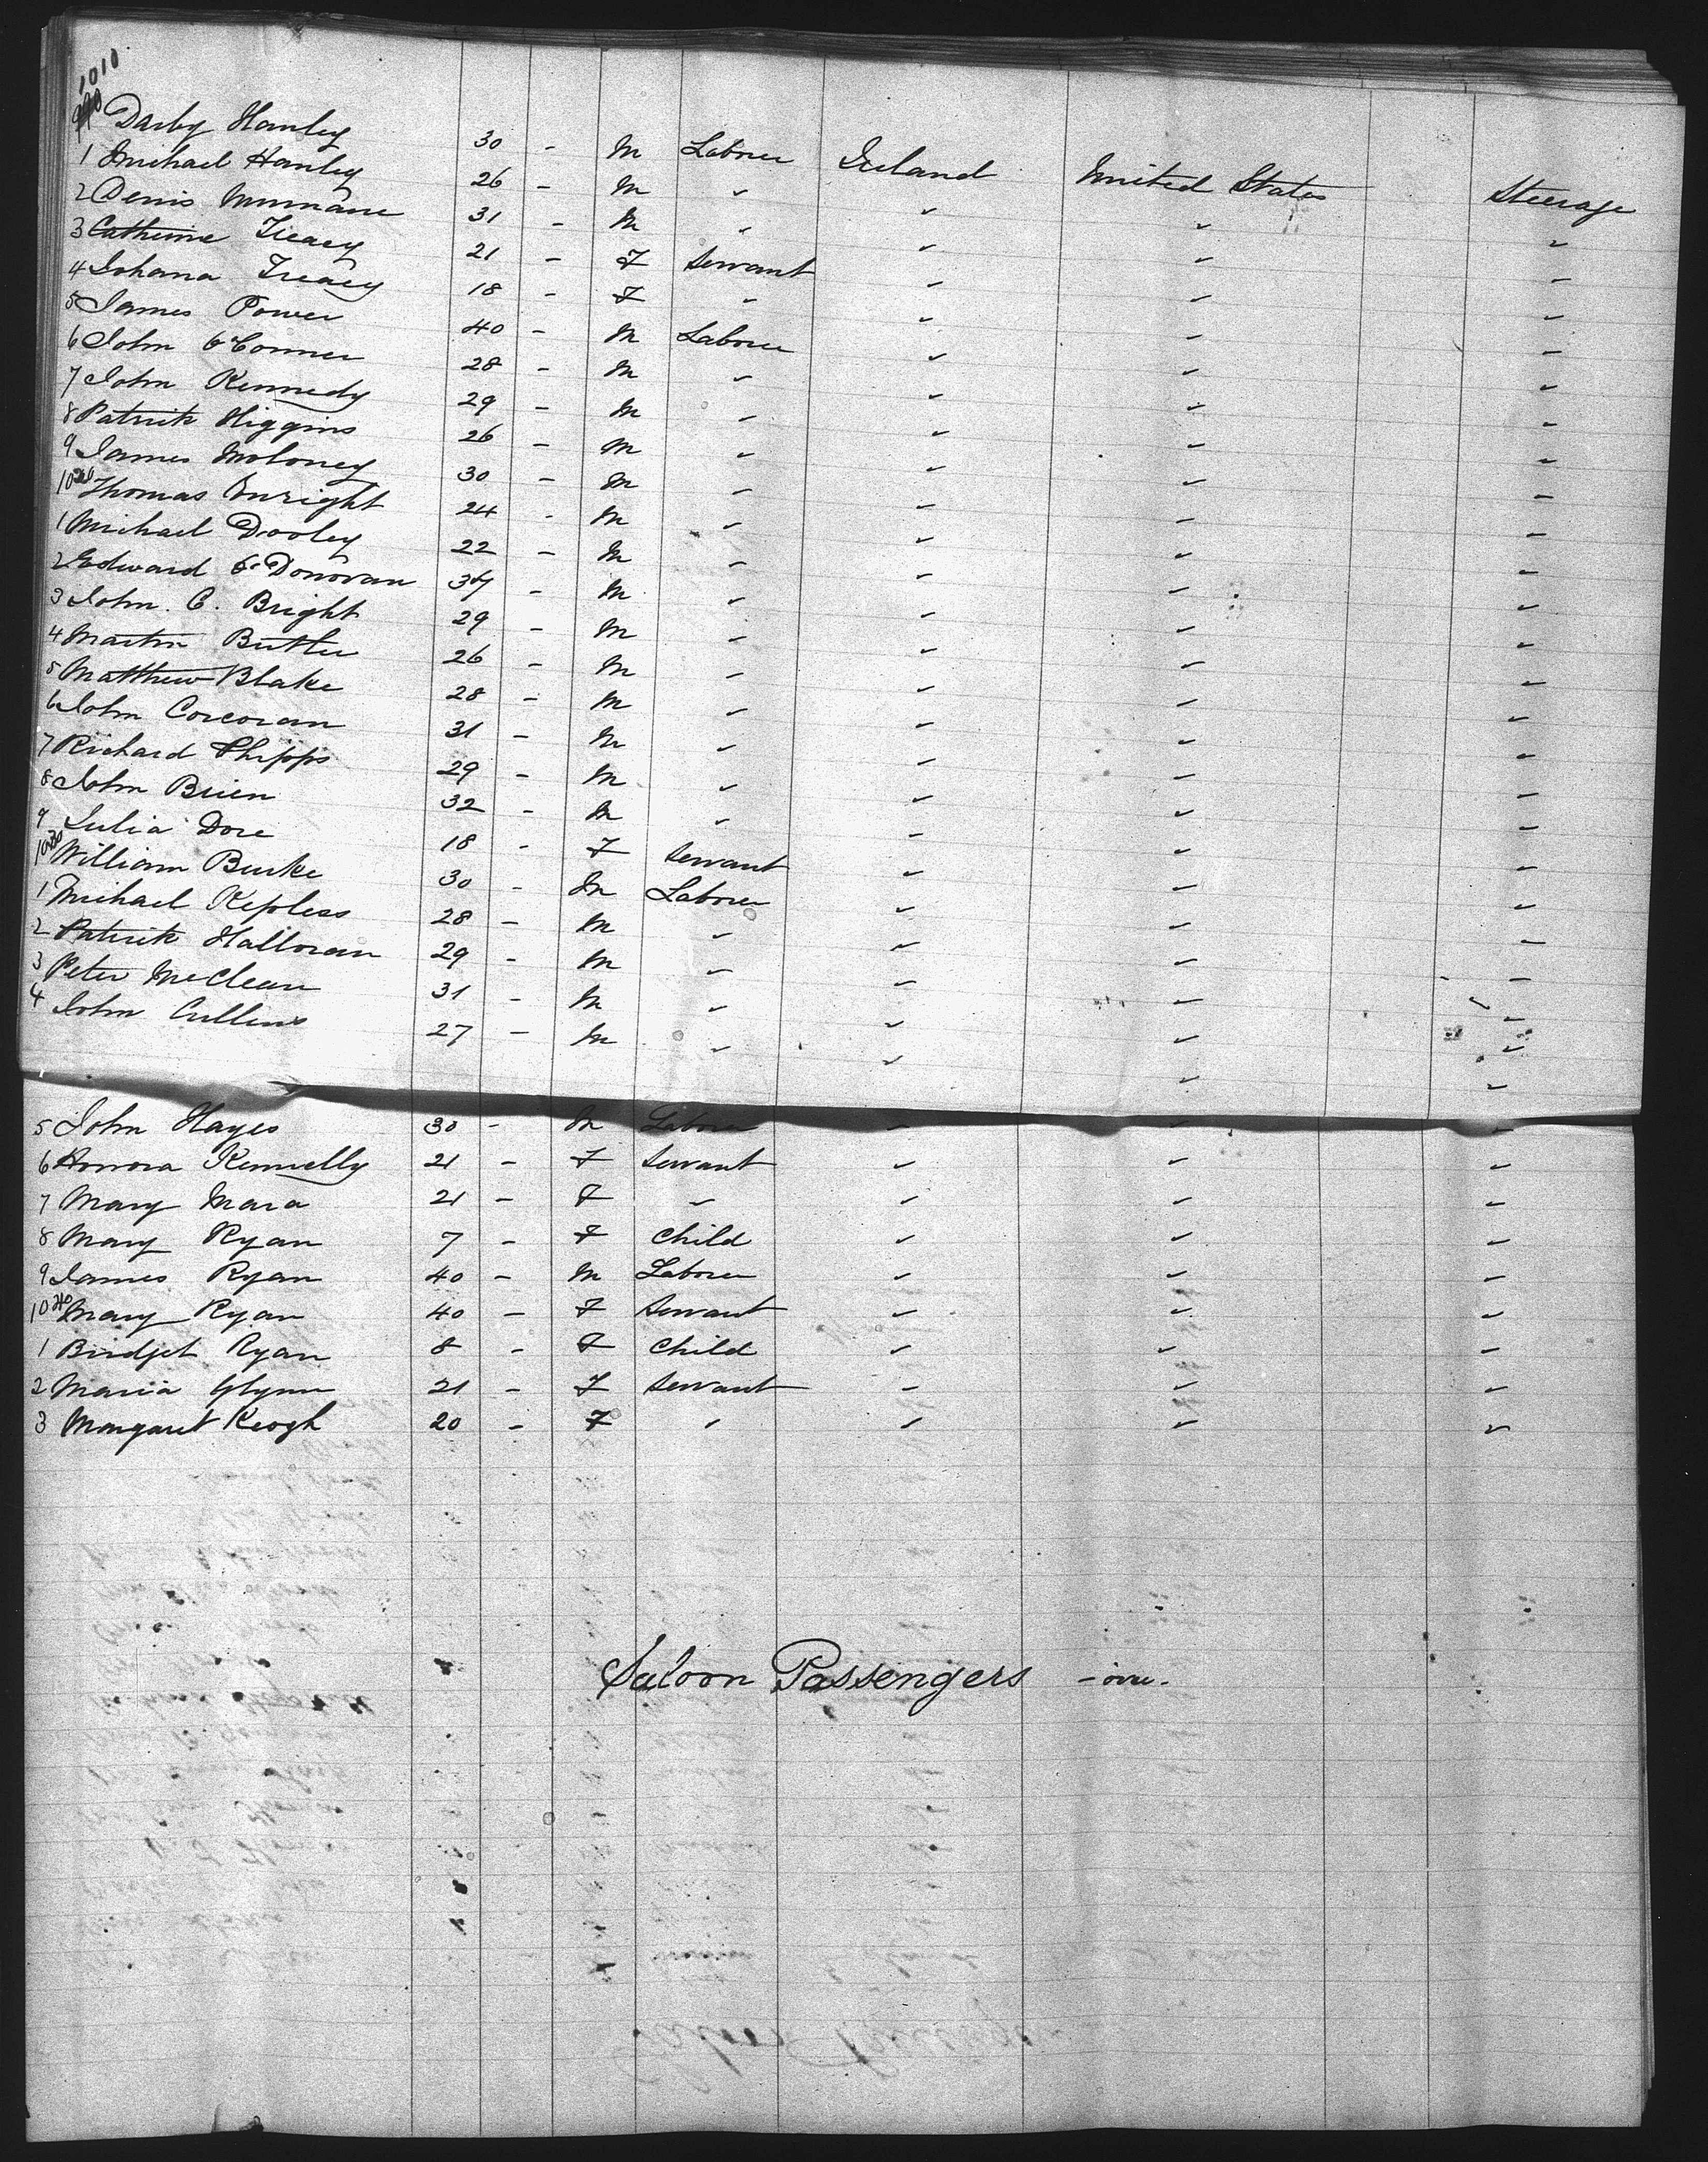 1010
990 Darby Hanley 30 - M Laborer Ireland United States Steerage
1 Michael Hanley 26 - M " " " "
2 Denis Murnane 31 - M " " " "
3 Catherine Treacy 21 - F Servant " " "
4 Johana Treacy 18 - F " " " "
5 James Power 40 - M Laborer " " "
6 John O'Conner 28 - M " " " "
7 John Kennedy 29 - M " " " "
8 Patrick Higgins 26 - M " " " "
9 James Moloney 30 - M " " " "
1020 Thomas Enright 24 - M " " " "
1 Michael Dooley 22 - M " " " "
2 Edward O'Donovan 34 - M " " " "
3 John. C. Bright 29 - M " " " "
4 Martin Butler 26 - M " " " "
5 Matthew Blake 28 - M " " " "
6 John Corcoran 31 - M " " " "
7 Richard Phipps 29 - M " " " "
8 John Brien 32 - M " " " "
9 Julia Dore 18 - F Servant " " "
1030 William Burke 30 - M Laborer " " "
1 Michael Kepless 28 - M " " " "
2 Patrick Halloran 29 - M " " " "
3 Peter McClean 31 - M " " " "
4 John Cullens 27 - M " " " "
5 John Hayes 30 - M Laborer " " "
6 Honora Kennelly 21 - F Servant " " "
7 Mary Mara 21 - F " " " "
8 Mary Ryan 7 - F Child " " "
9 James Ryan 40 - M Laborer " " "
1040 Mary Ryan 40 - F Servant " " "
1 Bridget Ryan 8 - F Child " " "
2 Maria Glynn 21 - F Servant " " "
3 Margaret Keogh 20 - F " " " "
Saloon Passengers - over -